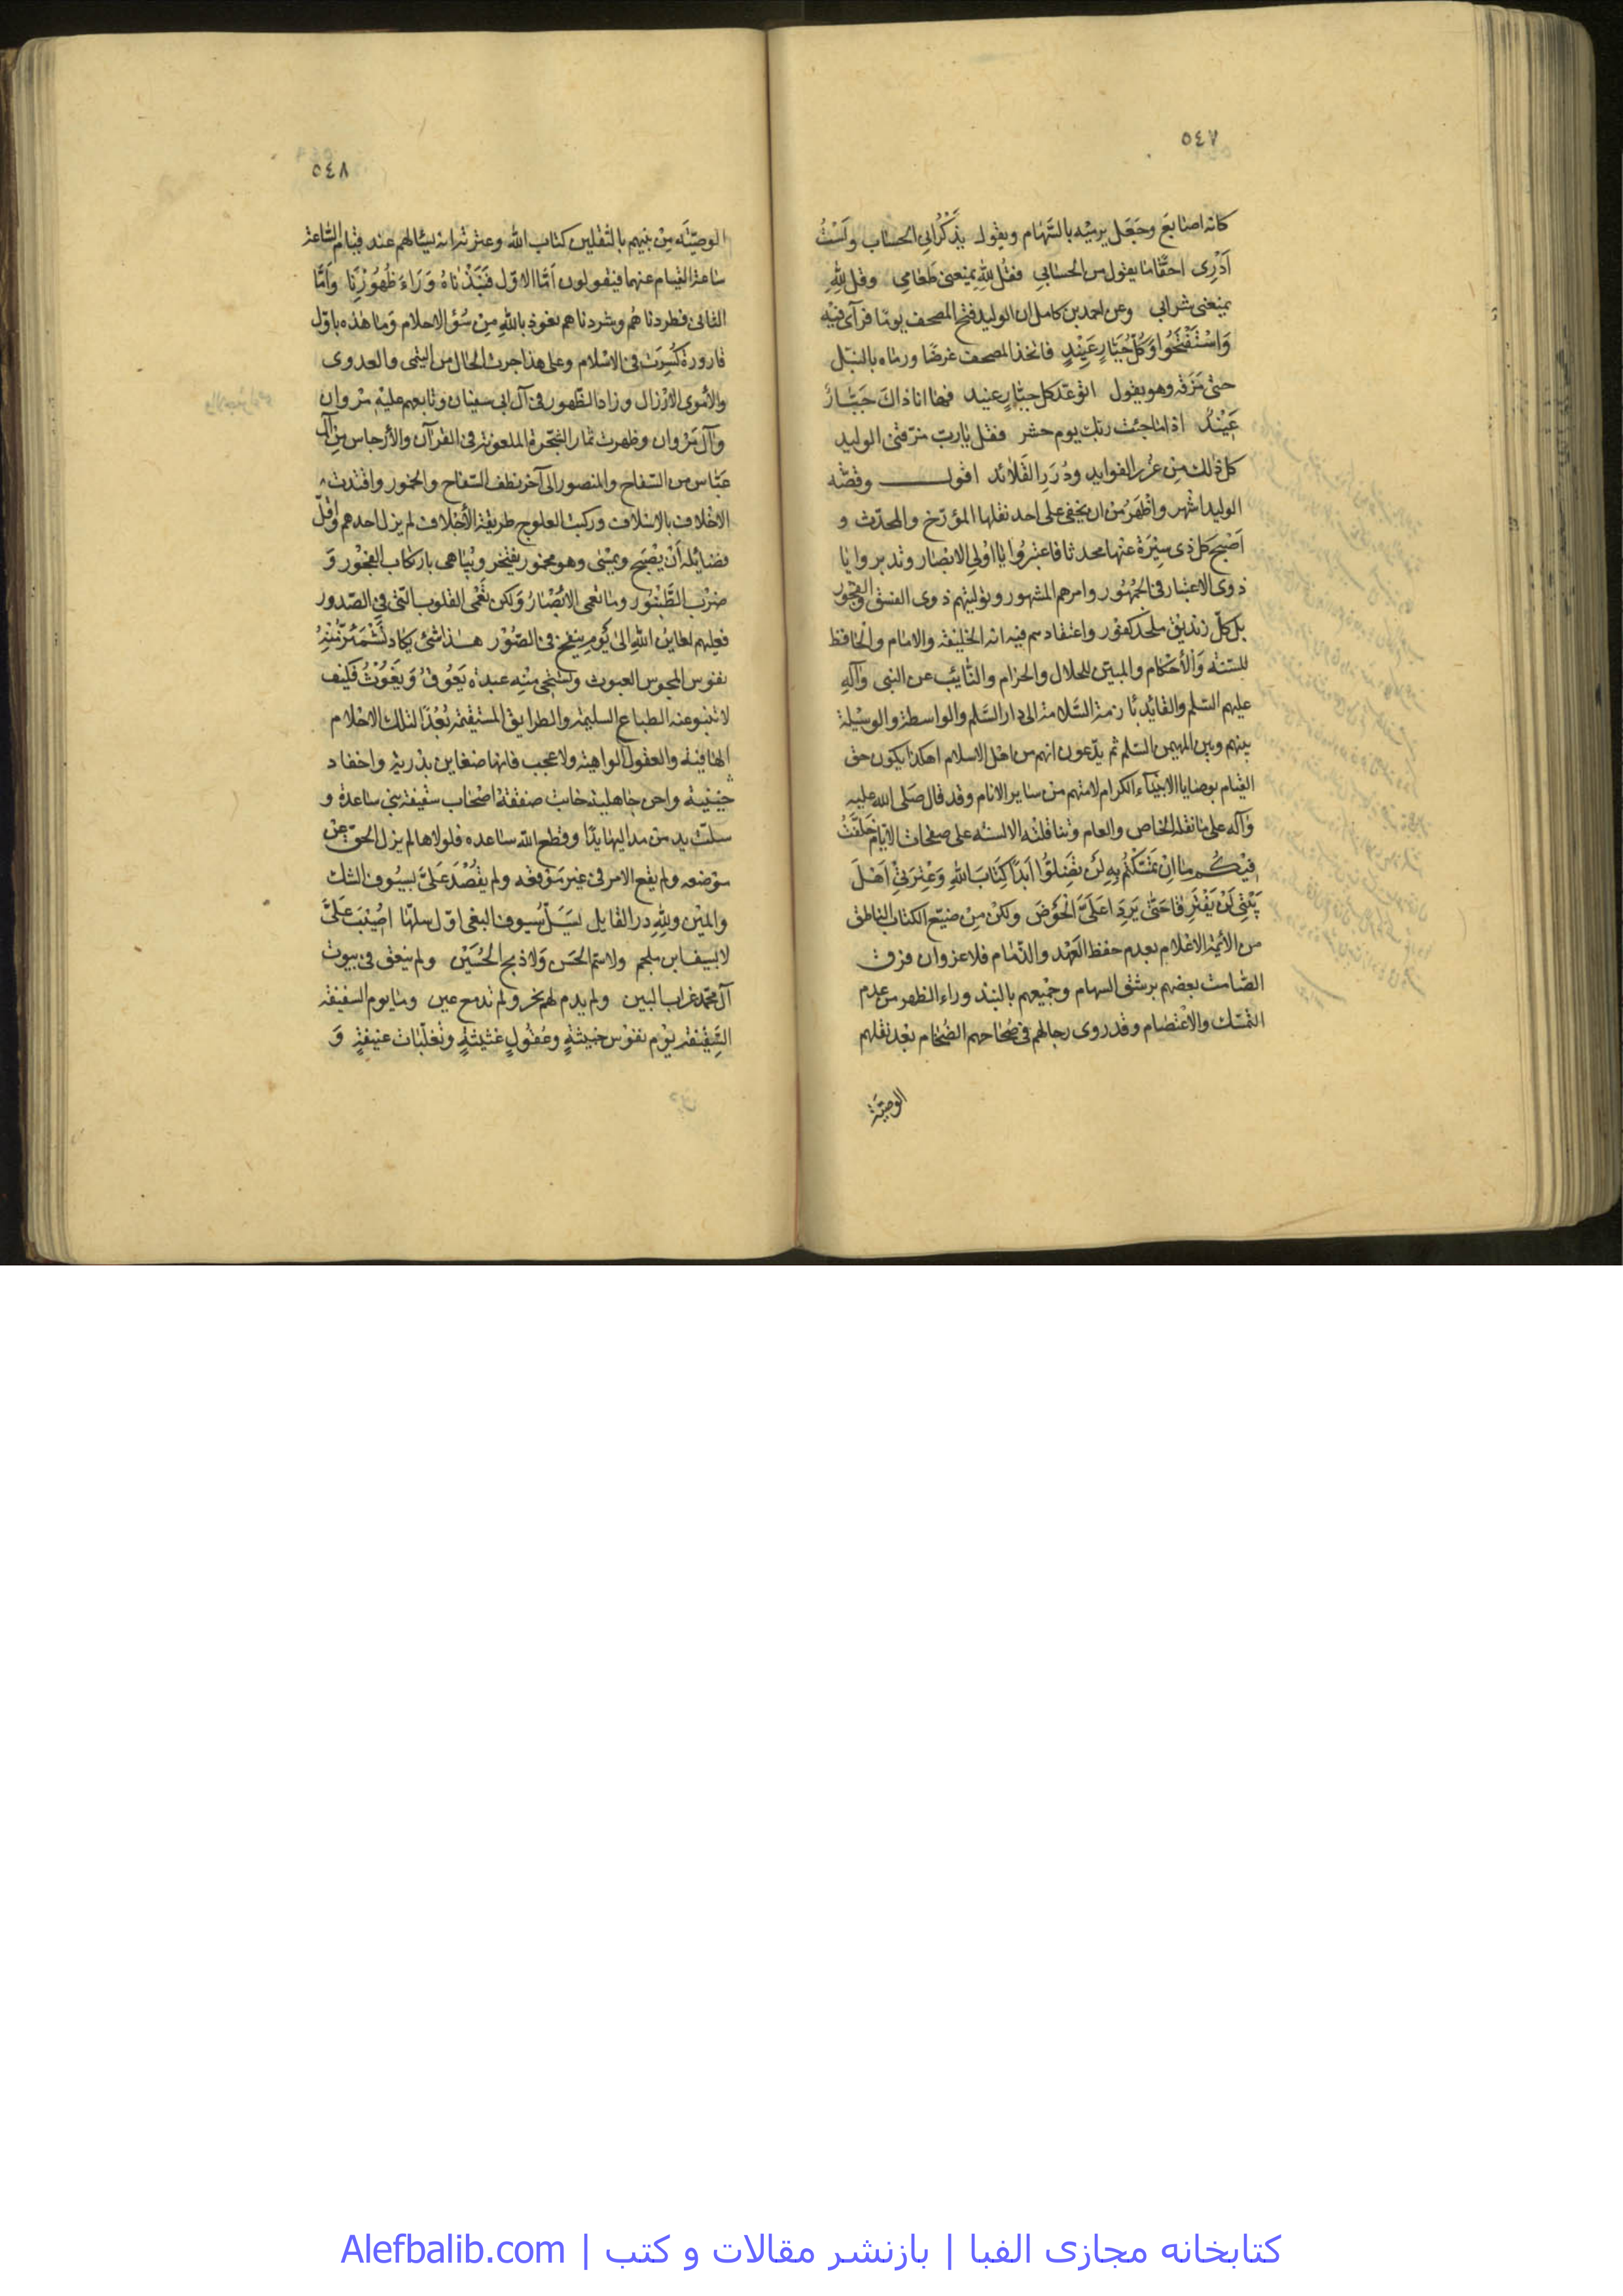 ٥٤٧
كانه اصابع وجعل يرميه بالسهام ويقول يذكرني الحساب ولست
ادري احقا ما يقول من الحساب فقل لله يمنعني طعامي وقل لله
يمنعني شرابي وعن احمد بن كامل ان الوليد فتح المصحف يوما فرآى فيه
واستفتحوا وكل جبار عنيد فاتخذ المصحف غرضا ورماه بالنبل
حتى مزقه وهو يقول اتوعد كل جبار عنيد فها انا ذاك جبار
عنيد اذا ما جئت ربك يوم حشر فقل يا رب مزقني الوليد
كل ذلك من غرر الفوايد ودرر القلائد اقول وقصة
الوليد اشهر واظهر من ان يخفى على احد نقلها المؤرخ والمحدث و
اصبح كل ذى سيرة عنها محدثا فاعتبروا يا اولى الابصار وتدبروا يا
ذوى الاعتبار فى الجمهور وامرهم المشهور وتوليتهم ذوى الفسق والفجور
بل كل زنديق ملحد كفور واعتقادهم فيه انه الخليفة والامام والحافظ
للسنة والأحكام والمبين للحلال والحرام والنائب عن النبى وآله
عليهم السلم والقائد بازمة السلامة الى دار السلم والواسطة والوسيلة
بينهم وبين المهيمن السلم ثم يدعون انهم من اهل الاسلام اهكذا يكون حق
القيام بوصايا الانبياء الكرام لامتهم من ساير الانام وقد قال صلى الله عليه
وآله على ما نقله الخاص والعام وتناقلته الالسنة على صفحات الايام خلفت
فيكم ما ان تمسكتم به لن تضلوا ابدا كتاب الله وعترتي اهل
بيتي لن يفترقا حتى يردا على الحوض ولكن من ضيع الكتاب الناطق
من الأئمة الاعلام بعدم حفظ العهد والذمام فلا غرو ان فرق
الصامت بعضهم برشق السهام وجميعهم بالنبذ وراء الظهر من عدم
التمسك والاعتصام وقد روى رجالهم فى صحاحهم الضخام بعد نقلهم
الوصية
٥٤٨
الوصية من نبيهم بالثقلين كتاب الله وعترته انه يسالهم عند قيام الساعة
ساعة القيام عنهما فيقولون اما الاول فنبذناه وراء ظهورنا واما
الثانى فطردناهم وشردناهم نعوذ بالله من سؤ الاحلام وما هذه باول
قارورة كسرت فى الاسلام وعلى هذا جرت الحال من التيمى والعدوى
والأموى الارذال وزاد الظهور فى آل ابى سفيان وتابعهم عليه مروان
وآل مروان وظهرت ثمار الشجرة الملعونة فى القرآن والأرجاس من آل
عباس من السفاح والمنصور الى آخر نطف السفاح والخمور واقتدت
الاخلاف بالاسلاف وركبت العلوج طريقة الأجلاف لم يزل احدهم واقل
فضائله أن يصبح ويمسى وهو مخمور يفتخر ويباهى بارتكاب الفجور و
ضرب الطنبور وما تعمى الابصار ولكن تعمى القلوب التى فى الصدور
فعليهم لعاين الله الى يوم ينفخ فى الصور هذا شئ يكاد تشمئز منه
نفوس المجوس العبوث ويستحى منه عبدة يعوق ويغوث فكيف
لا تنبو عنه الطباع السليمة والطرايق المستقيمة بعدا لتلك الاحلام
الهافية والعقول الواهية ولا عجب فانها ضغاين بدرية واحقاد
واحن جاهلية خابت صفقة اصحاب سقيفة بنى ساعدة و
سلت يد من مد اليها يدا وقطع الله ساعده فلولاها لم يزل الحق عن
موضعه ولم يقع الامر فى غير موقعه ولم يقصد على بسيوف الشك
والمين ولله در القايل بسل سيوف البغى اول سلها اصيب على
لا بسيف ابن ملجم ولا سم الحسن ولا ذبح الحسين ولم ينعق فى بيوت
آل محمد غراب البين ولم يدم لهم نحر ولم تدمع عين وما يوم السقيفة
السقيفة يوم نفوس خبيثة وعقول غثيثة وتغلبات عنيفة و
کتابخانه مجازی الفبا | بازنشر مقالات و کتب | Alefbalib.com